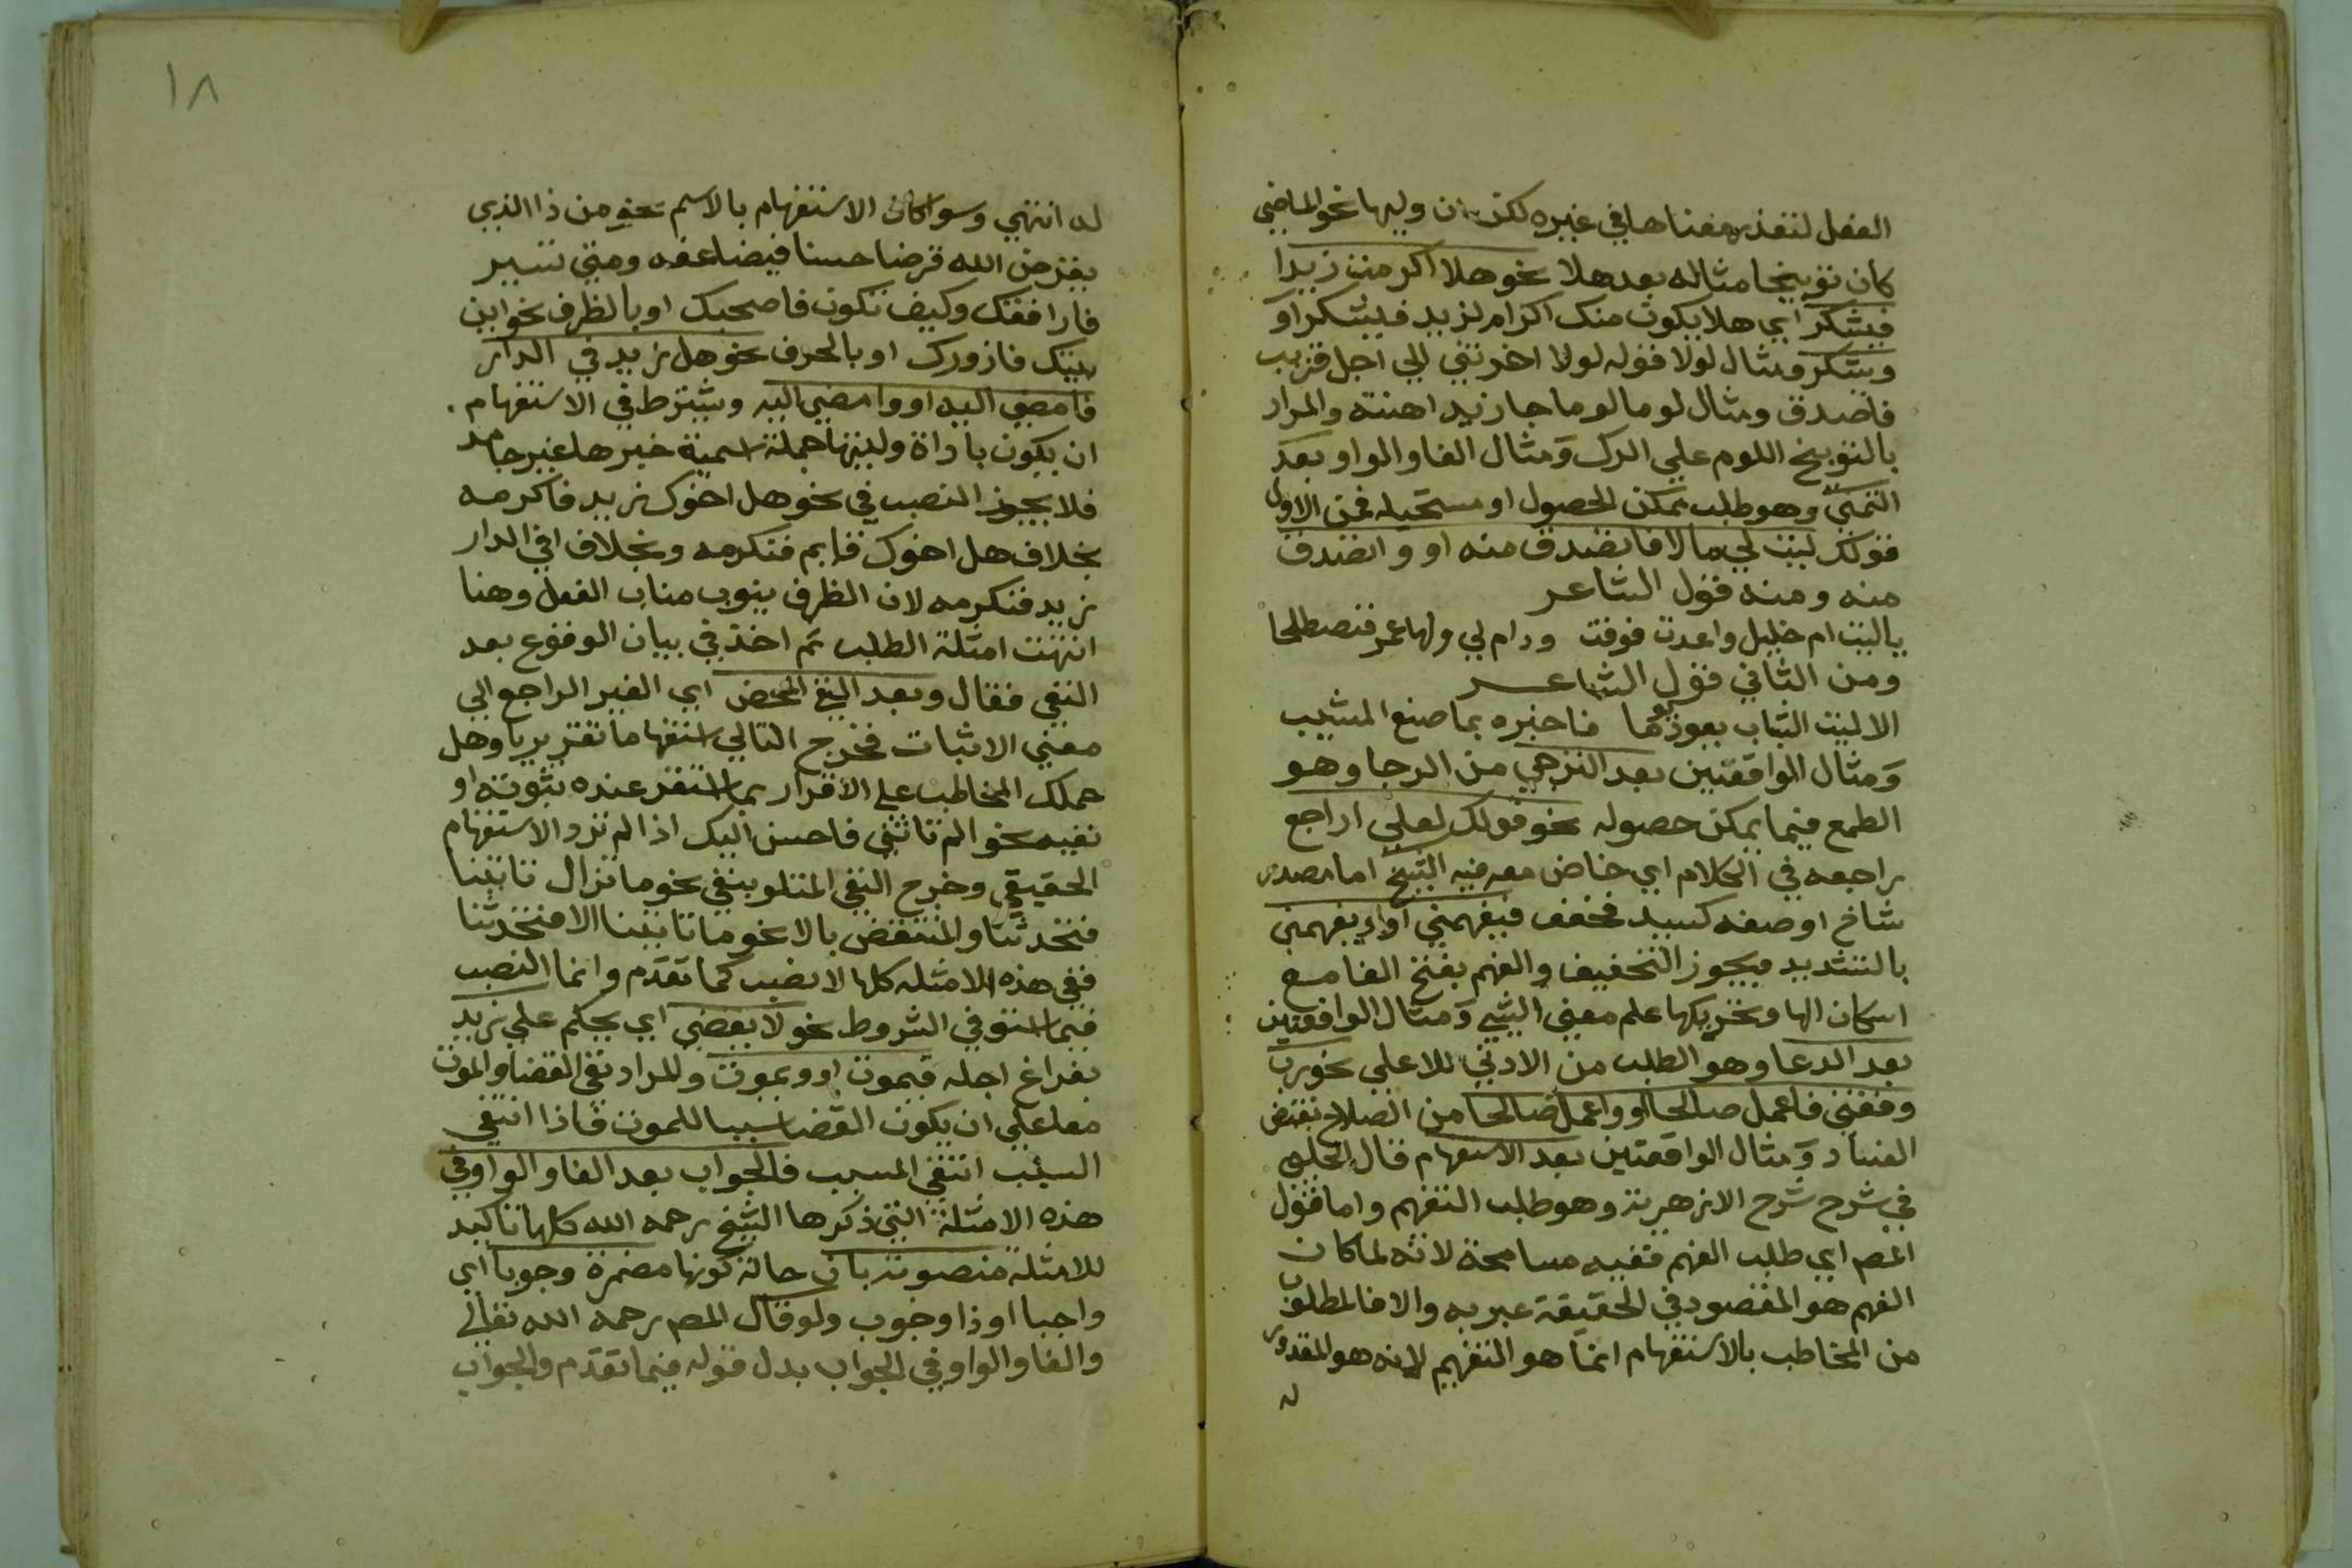 الفعل لتعذر معناها في غيره لكن ان وليها نحو الماضي
كان توبيخا مثاله بعد هلا نحو هلا اكرمت زيدا
فيشكر اي هلا يكون منك اكرام لزيد فيشكر او
ويشكر ومثال لولا قوله لولا اخرتني الي اجل قريب
فاصدق ومثال لوما لوما جا زيد اهنته والمراد
بالتوبيخ اللوم علي الترك ومثال الفا والواو بعد
التمني وهو طلب ممكن الحصول او مستحيله فمن الاول
قولك ليت لي مالا فاتصدق منه او واتصدق
منه ومنه قول الشاعر
ياليت ام خليل واعدت فوفت ودام لي ولها عمر فنصطلحا
ومن الثاني قول الشاعر
الا ليت الشباب يعود يوما فاخبره بما صنع المشيب
ومثال الواقعتين بعد الترجي من الرجا وهو
الطمع فيما يمكن حصوله نحو قولك لعلي اراجع
راجعه في الكلام اي خاض معه فيه الشيخ اما مصدر
شاخ او صفه كسيد مخفف فيفهمني او ويفهمني
بالتشديد ويجوز التخفيف والفهم بفتح الفا مع
اسكان الها وتحريكها علم معني الشي ومثال الواقعتين
بعد الدعا وهو الطلب من الادني للاعلي نحو رب
وفقني فاعمل صالحا او واعمل صالحا من الصلاح نقيض
الفساد ومثال الواقعتين بعد الاستفهام قال الحلبي
في شرح شرح الازهرية وهو طلب التفهم واما قول
المص اي طلب الفهم ففيه مسامحة لانه لما كان
الفهم هو المقصود في الحقيقة عبر به والا فالمطلوب
من المخاطب بالاستفهام انما هو التفهيم لانه هو المقدور
له
١٨
له انتهي وسوا كان الاستفهام بالاسم نحو من ذا الذي
يقرض الله قرضا حسنا فيضاعفه ومتي تسير
فارافقك وكيف تكون فاصحبك او بالظرف نحو اين
بيتك فازورك او بالحرف نحو هل زيد في الدار
فامضي اليه او وامضي اليه ويشترط في الاستفهام
ان يكون باداة وليتها جملة اسمية خبرها غير جامد
فلا يجوز النصب في نحو هل اخوك زيد فاكرمه
بخلاف هل اخوك قايم فنكرمه وبخلاف افي الدار
زيد فنكرمه لان الظرف ينوب مناب الفعل وهنا
انتهت امثلة الطلب ثم اخذ في بيان الوقوع بعد
النفي فقال وبعد النفي المحض اي الغير الراجع الي
معني الاثبات فخرج التالي استفهاما تقريريا وهل
حملك المخاطب علي الاقرار بما استقر عنده ثبوته او
نفيه نحو الم تاتني فاحسن اليك اذا لم ترد الاستفهام
الحقيقي وخرج النفي المتلو بنفي نحو ما تزال تاتينا
فتحدثنا والمنتقض بالا نحو ما تاتينا الا فتحدثنا
ففي هذه الامثله كلها لا نصب كما تقدم وانما النصب
فيما استوفي الشروط نحو لا يقضي اي يحكم علي زيد
بفراغ اجله فيموت او ويموت والمراد نفي القضا والموت
معا علي ان يكون القضا سببا للموت فاذا انتفي
السبب انتفي المسبب فالجواب بعد الفا والواو في
هذه الامثلة التي ذكرها الشيخ رحمه الله كلها تاكيد
للامثلة منصوبة بان حالة كونها مضمرة وجوبا اي
واجبا او ذا وجوب ولو قال المص رحمه الله تعالي
والفا والواو في الجواب بدل قوله فيما تقدم والجواب